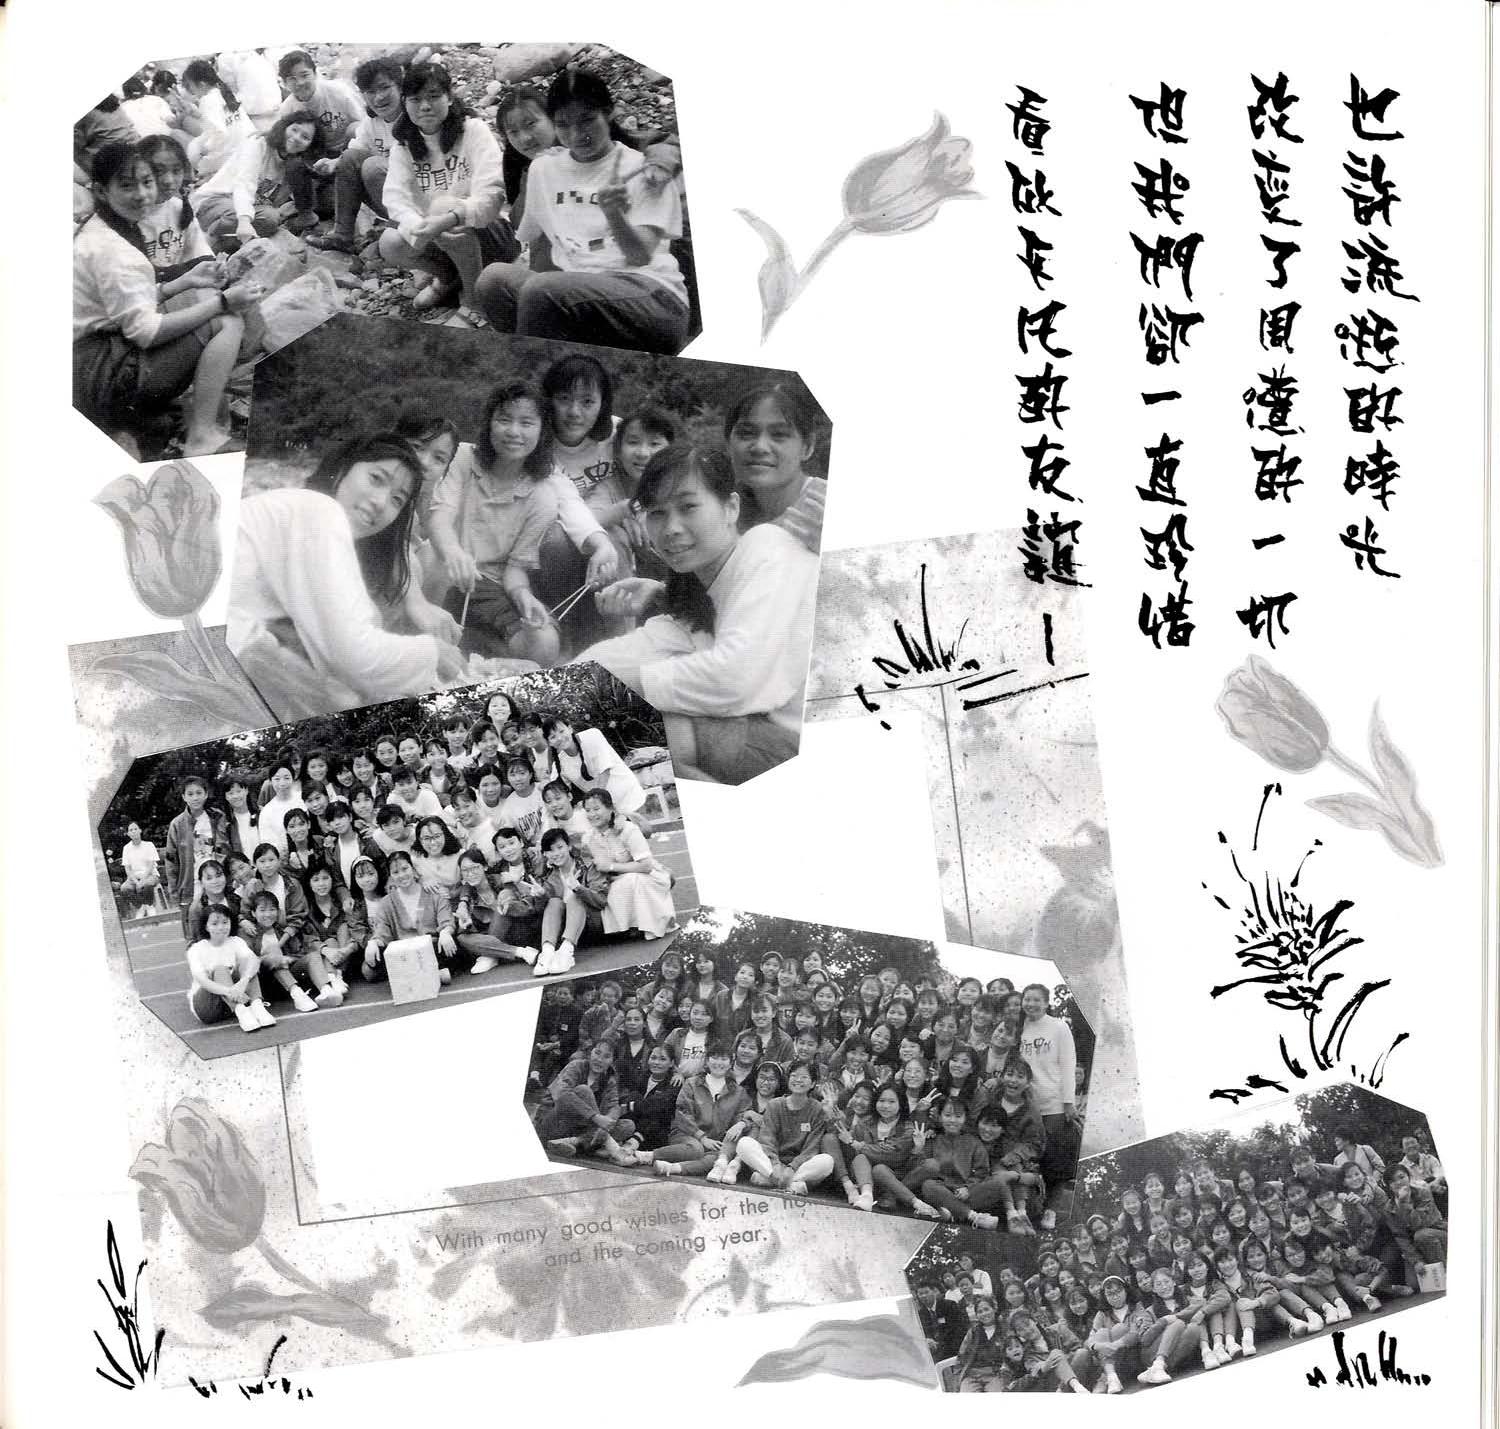 也許流逝的時光
改變了周遭的一切
但我們卻一直珍惜
看似平凡的友誼—
With many good wishes for the
and the coming year.